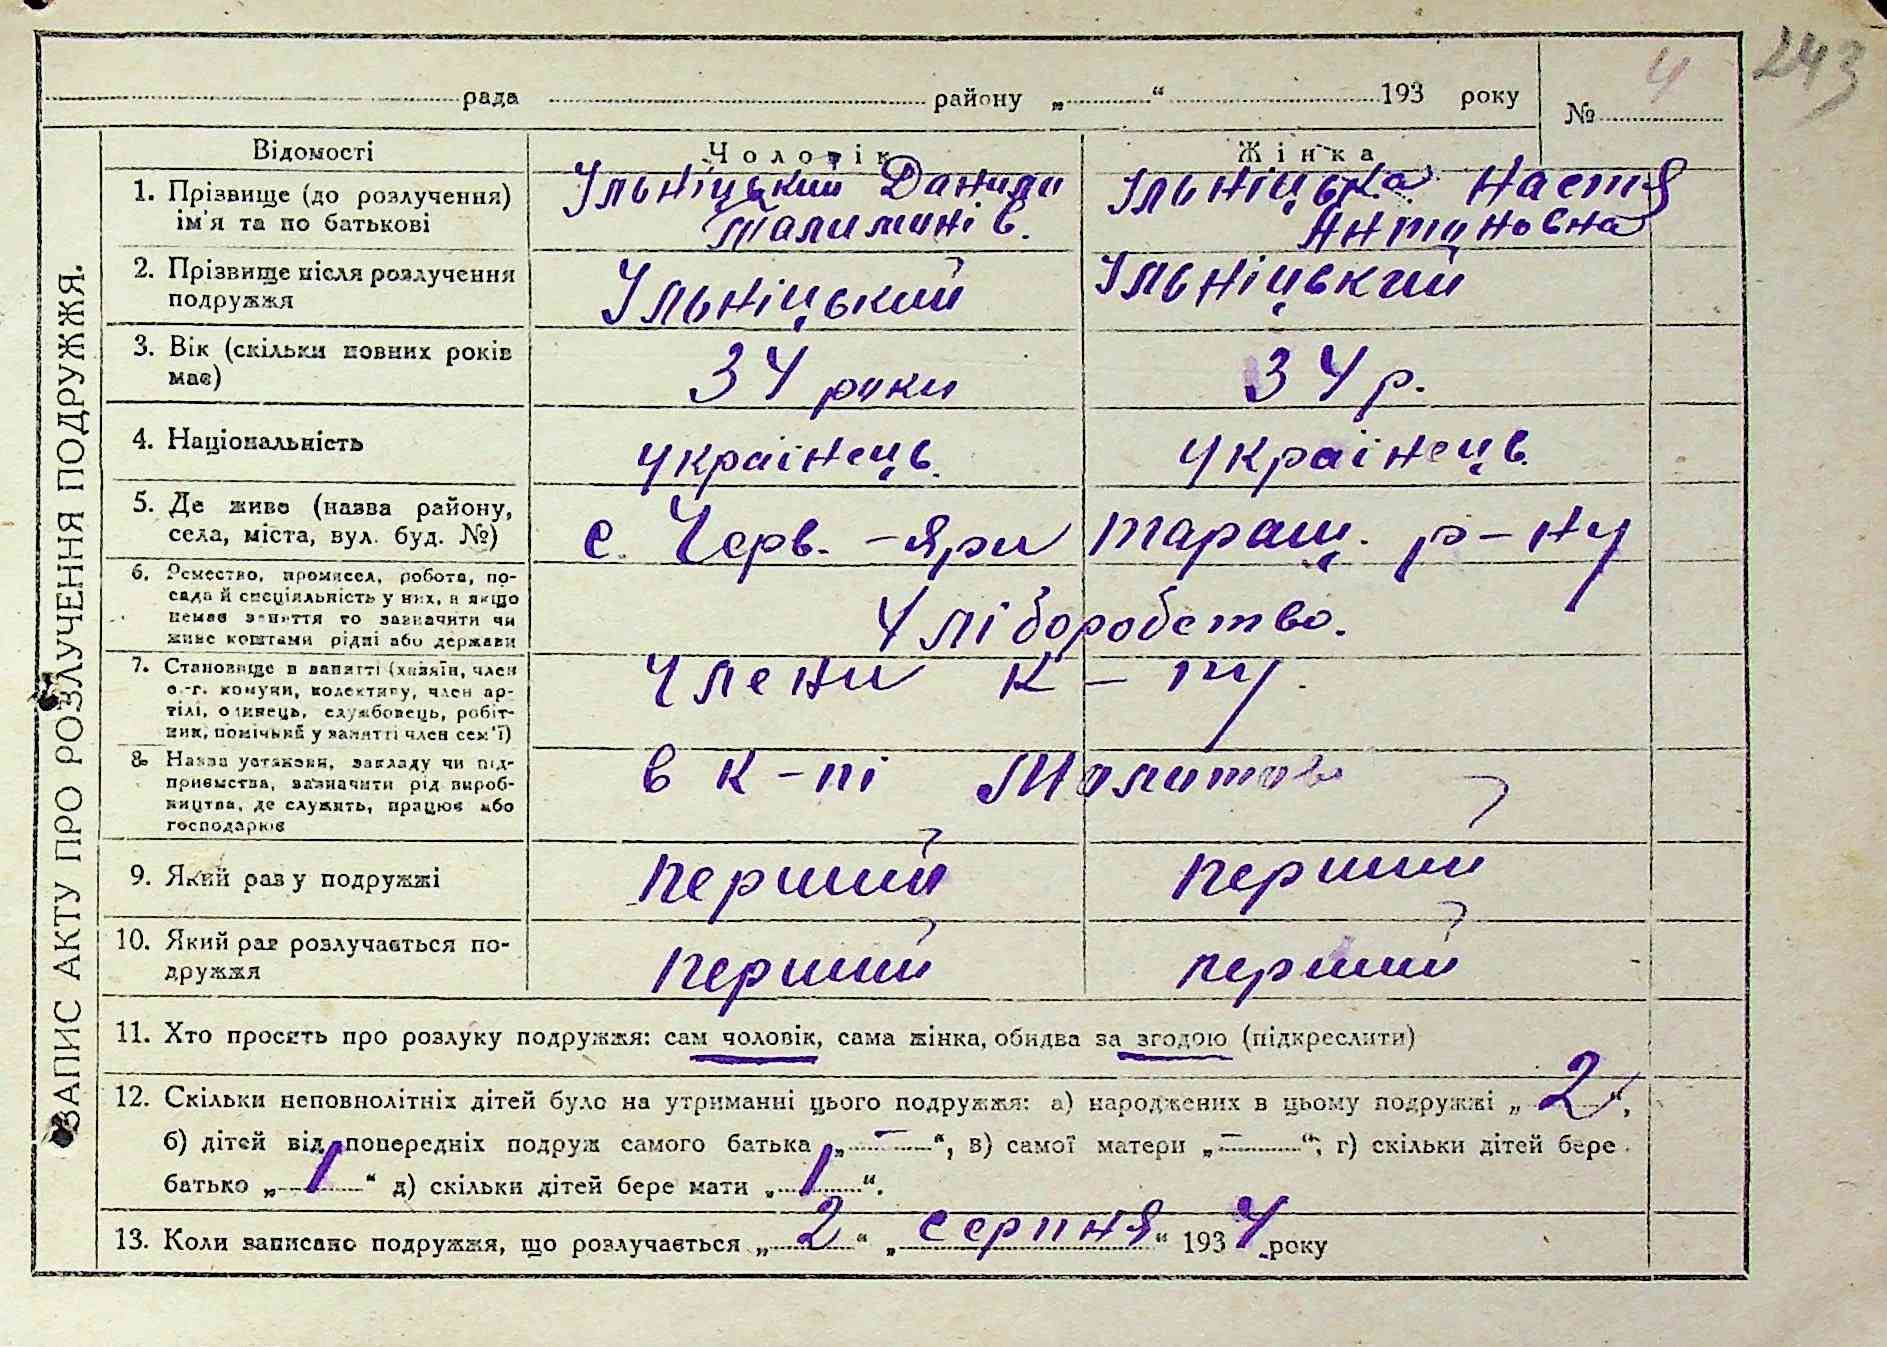 243
рада району „ “ 193 року № 4
ЗАПИС АКТУ ПРО РОЗЛУЧЕННЯ ПОДРУЖЖЯ.
Відомості Чоловік Жінка
1. Прізвище (до розлучення) Ільніцький Данило Ільніцька Настя
ім'я та по батькові Антоновна
2. Прізвище після розлучення Ільніцький Ільніцький
подружжя
3. Вік (скільки повних років 34 роки 34 р.
має)
4. Національність українець. українець.
5. Де живе (назва району,
села, міста, вул. буд. №) с. Черв. - Яри Таращ. р-ну
6. Ремество, промисел, робота, по-
сада й спеціяльність у них, а якщо
немає заняття то зазначити чи Хліборобство.
живе коштами рідні або держави
7. Становище в занятті (хазяїн, член Члени к-пу.
с.-г. комуни, колективу, член ар-
тілі, одинець, службовець, робіт-
ник, помічний у занятті член сем'ї)
8. Назва установи, закладу чи під- в к-пі
приємства, зазначити рід вироб-
ництва, де служить, працює або
господарює
9. Який раз у подружжі перший перший
10. Який раз розлучається по- перший перший
дружжя
11. Хто просить про розлуку подружжя: сам чоловік, сама жінка, обидва за згодою (підкреслити)
12. Скільки неповнолітніх дітей було на утриманні цього подружжя: а) народжених в цьому подружжі „ 2 “,
б) дітей від попередніх подруж самого батька „ — “, в) самої матери „ — “, г) скільки дітей бере
батько „ 1 “ д) скільки дітей бере мати „ 1 “.
13. Коли записано подружжя, що розлучається „ 2 “ „ серпня “ 1934 року